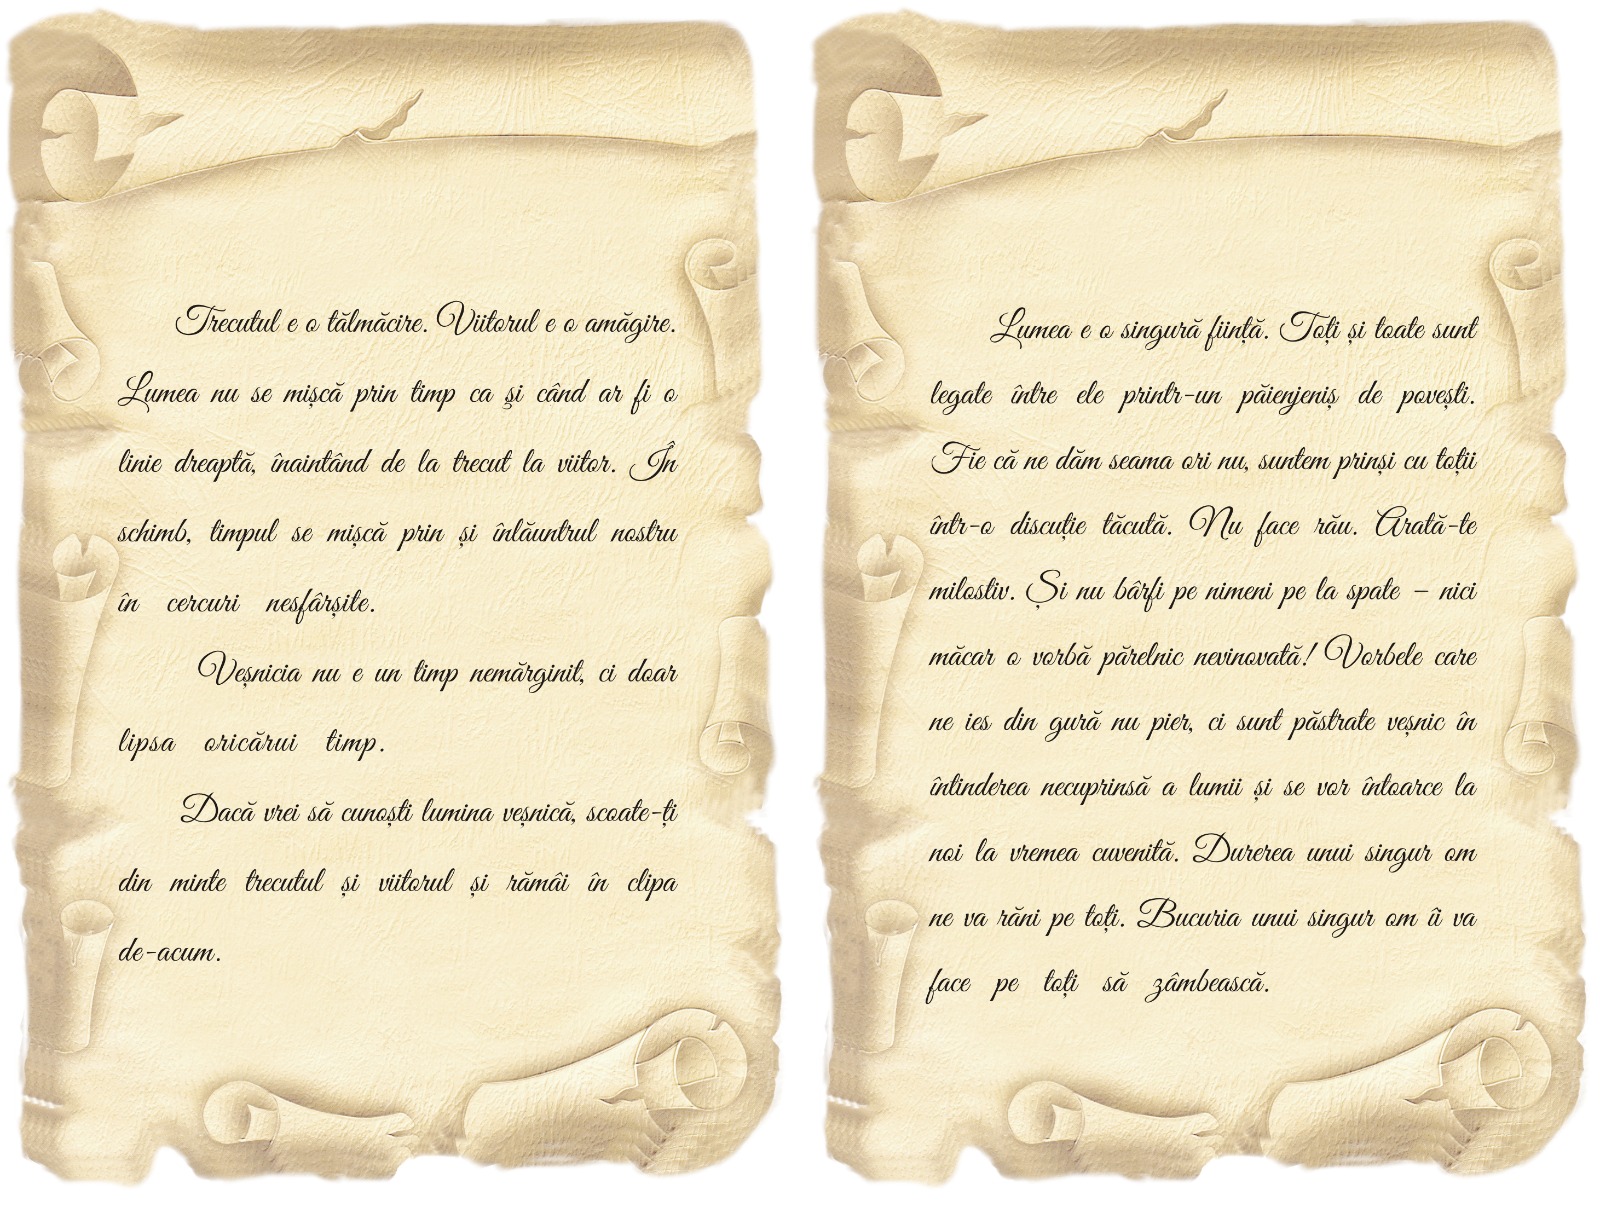 Trecutul e o tălmăcire. Viitorul e o amăgire.
Lumea nu se mișcă prin timp ca şi când ar fi o
linie dreaptă, înaintând de la trecut la viitor. În
schimb, timpul se mișcă prin și înlăuntrul nostru
în cercuri nesfârșite.
Veșnicia nu e un timp nemărginit, ci doar
lipsa oricărui timp.
Dacă vrei să cunoști lumina veșnică, scoate-ți
din minte trecutul și viitorul și rămâi în clipa
de-acum.
Lumea e o singură ființă. Toți și toate sunt
legate între ele printr-un păienjeniș de povești.
Fie că ne dăm seama ori nu, suntem prinși cu toții
într-o discuție tăcută. Nu face rău. Arată-te
milostiv. Și nu bârfi pe nimeni pe la spate – nici
măcar o vorbă părelnic nevinovată! Vorbele care
ne ies din gură nu pier, ci sunt păstrate veșnic în
întinderea necuprinsă a lumii și se vor întoarce la
noi la vremea cuvenită. Durerea unui singur om
ne va răni pe toți. Bucuria unui singur om îi va
face pe toți să zâmbească.